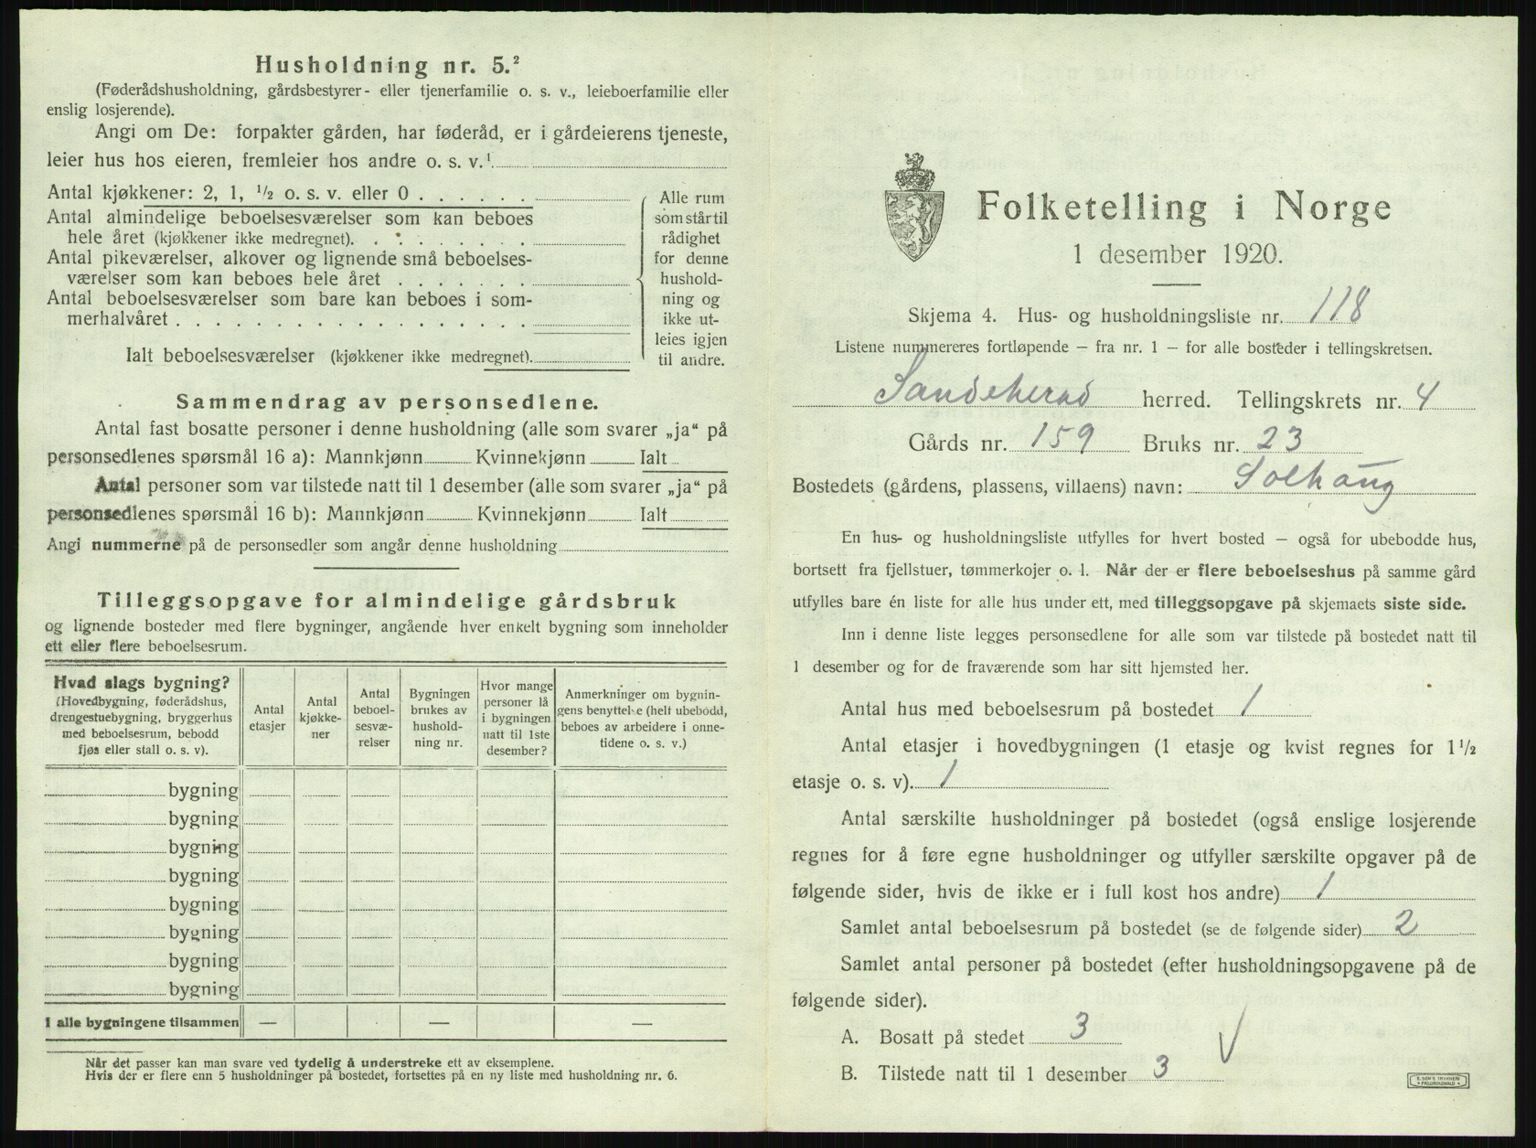 Husholdning nr. 5.²
(Føderådshusholdning, gårdsbestyrer- eller tjenerfamilie o. s. v., leieboerfamilie eller
enslig losjerende).
Angi om De: forpakter gården, har føderåd, er i gårdeierens tjeneste,
leier hus hos eieren, fremleier hos andre o. s. v.¹
Antal kjøkkener: 2, 1, ½ o. s. v. eller 0 . . . . . .
Antal almindelige beboelsesværelser som kan beboes
hele året (kjøkkener ikke medregnet). . . . . . . . .
Antal pikeværelser, alkover og lignende små beboelses-
værelser som kan beboes hele året . . . . . . .
Antal beboelsesværelser som bare kan beboes i som-
merhalvåret . . . . . . . . . . . . . . . . . .
Ialt beboelsesværelser (kjøkkener ikke medregnet).
Alle rum
som står til
rådighet
for denne
hushold-
ning og
ikke ut-
leies igjen
til andre.
Sammendrag av personsedlene.
Antal fast bosatte personer i denne husholdning (alle som svarer „ja“ på
personsedlenes spørsmål 16 a): Mannkjønn Kvinnekjønn Ialt
Antal personer som var tilstede natt til 1 desember (alle som svarer „ja“ på
personsedlenes spørsmål 16 b): Mannkjønn Kvinnekjønn Ialt
Angi nummerne på de personsedler som angår denne husholdning
Tilleggsopgave for almindelige gårdsbruk
og lignende bosteder med flere bygninger, angående hver enkelt bygning som inneholder
ett eller flere beboelsesrum.
Hvad slags bygning?
(Hovedbygning, føderådshus,
drengestuebygning, bryggerhus
med beboelsesrum, bebodd
fjøs eller stall o. s. v).
Antal
etasjer
Antal
kjøkke-
ner
Antal
beboel-
sesvæ-
relser
Bygningen
brukes av
hushold-
ning nr.
Hvor mange
personer lå
i bygningen
natt til 1ste
desember?
Anmerkninger om bygnin-
gens benyttelse (helt ubebodd,
beboes av arbeidere i onne-
tidene o. s. v.)
bygning
bygning
bygning
bygning
bygning
bygning
bygning
bygning
I alle bygningene tilsammen — — —
Når det passer kan man svare ved tydelig å understreke ett av eksemplene.
Hvis der er flere enn 5 husholdninger på bostedet, fortsettes på en ny liste med husholdning nr. 6.
Folketelling i Norge
1 desember 1920.
Skjema 4. Hus- og husholdningsliste nr. 118
Listene nummereres fortløpende – fra nr. 1 – for alle bosteder i tellingskretsen.
Sandeherad herred. Tellingskrets nr. 4
Gårds nr. 159 Bruks nr. 23
Bostedets (gårdens, plassens, villaens) navn: Solhaug
En hus- og husholdningsliste utfylles for hvert bosted – også for ubebodde hus,
bortsett fra fjellstuer, tømmerkojer o. l. Når der er flere beboelseshus på samme gård
utfylles bare én liste for alle hus under ett, med tilleggsopgave på skjemaets siste side.
Inn i denne liste legges personsedlene for alle som var tilstede på bostedet natt til
1 desember og for de fraværende som har sitt hjemsted her.
Antal hus med beboelsesrum på bostedet 1
Antal etasjer i hovedbygningen (1 etasje og kvist regnes for 1½
etasje o. s. v). 1
Antal særskilte husholdninger på bostedet (også enslige losjerende
regnes for å føre egne husholdninger og utfyller særskilte opgaver på de
følgende sider, hvis de ikke er i full kost hos andre) 1
Samlet antal beboelsesrum på bostedet (se de følgende sider) 2
Samlet antal personer på bostedet (efter husholdningsopgavene på de
følgende sider).
A. Bosatt på stedet 3
B. Tilstede natt til 1 desember 3